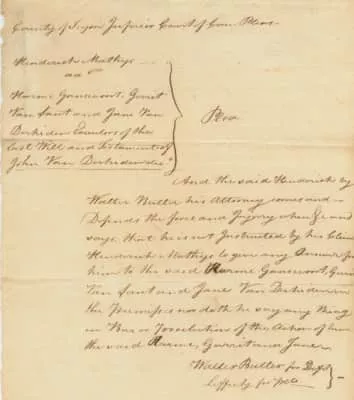 County of Tryon Inferior Court of Com. Pleas
Hendrick Mathys
ads
Harme Gansevoort, Gerrit
Van Sant and Jane Van
Derheiden Executors of the
Last Will and Testament of
John Van Derheiden decd
Plea
And the said Hendrick by
Walter Butler his Attorney comes and
Defends the force and Injury when &c and
says that he is not Instructed by his Client
Hendrick Mathys to give any Answer for
him to the said Harme Gansevoort, Gerrit
Van Sant and Jane Van Derheiden in
the Premises nor doth he say any thing
in Bar or Preclusion of the Action of them
the said Harme, Gerrit and Jane
Walter Butler for Deft
for